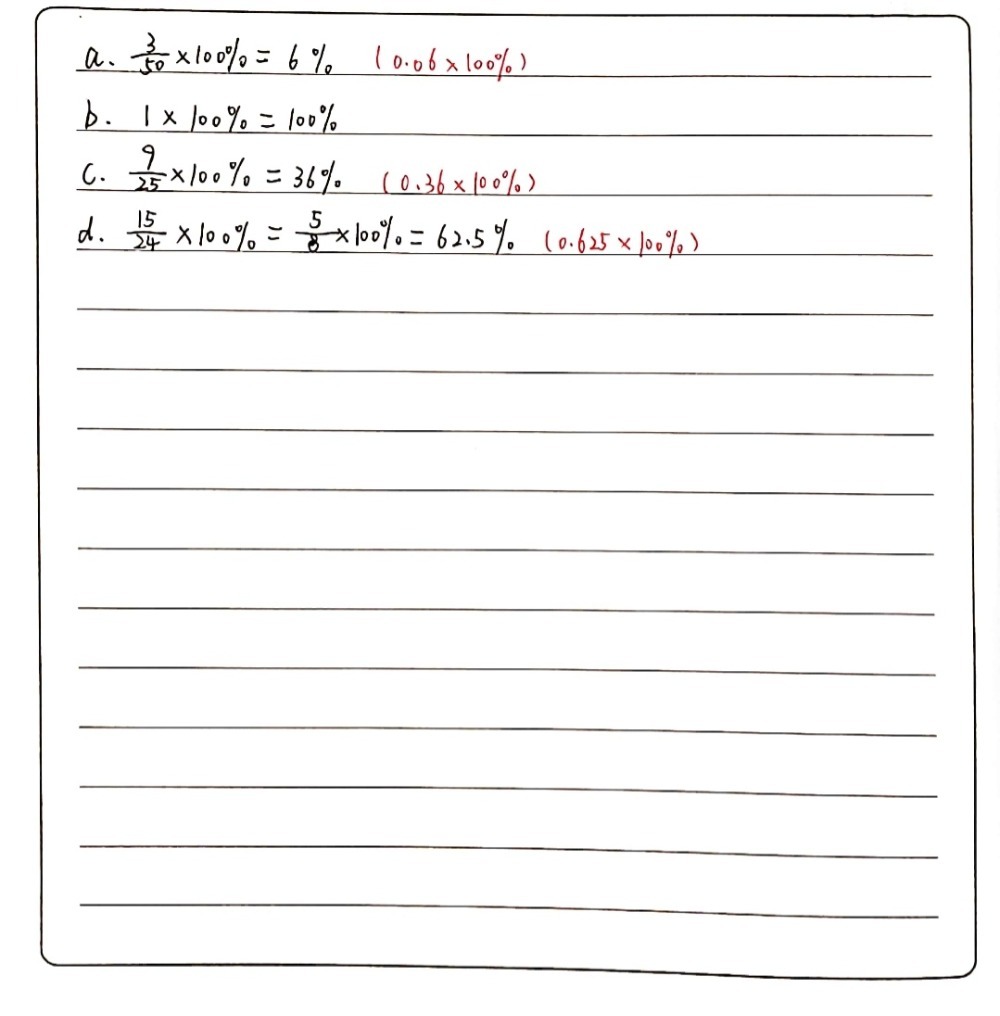 a. 3/50 ×100% = 6% (0.06×100%)
b. 1 × 100% = 100%
c. 9/25 ×100% = 36% (0.36×100%)
d. 15/24 ×100% = 5/8 ×100% = 62.5% (0.625×100%)